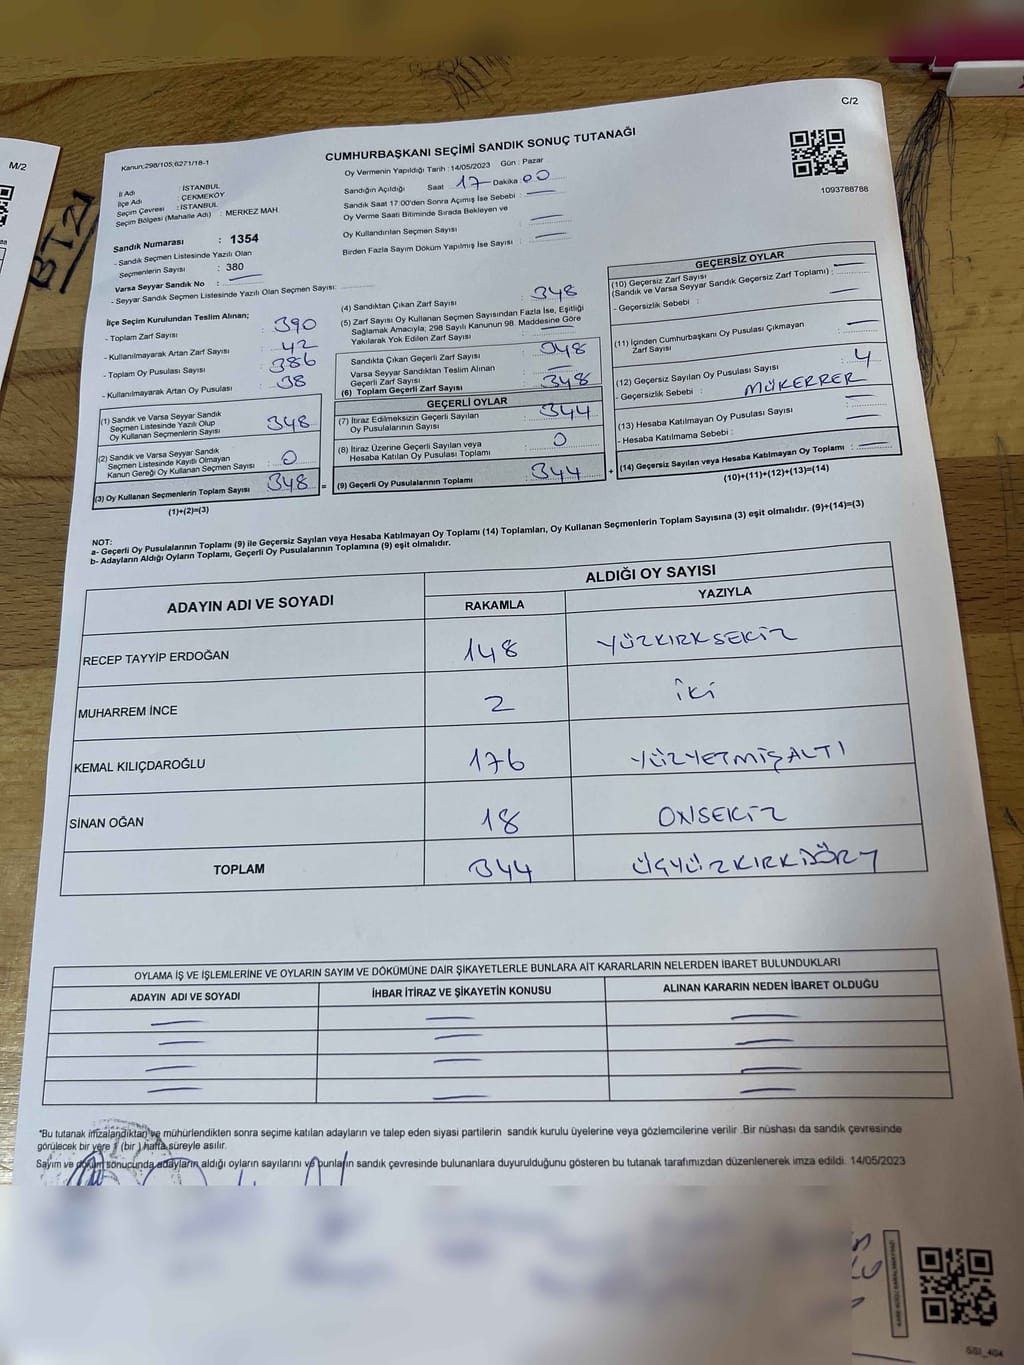 C/2
M/2
BT21
Kanun:298/105,6271/18-1
CUMHURBAŞKANI SEÇİMİ SANDIK SONUÇ TUTANAĞI
1093788788
İl Adı : İSTANBUL
İlçe Adı : ÇEKMEKÖY
Seçim Çevresi : İSTANBUL
Seçim Bölgesi (Mahalle Adı) : MERKEZ MAH.
Sandık Numarası : 1354
- Sandık Seçmen Listesinde Yazılı Olan
Seçmenlerin Sayısı : 380
Varsa Seyyar Sandık No :
- Seyyar Sandık Seçmen Listesinde Yazılı Olan Seçmen Sayısı:
Oy Vermenin Yapıldığı Tarih : 14/05/2023 Gün : Pazar
Sandığın Açıldığı Saat 17 Dakika 00
Sandık Saat 17:00'den Sonra Açımış İse Sebebi :
Oy Verme Saati Bitiminde Sırada Bekleyen ve
Oy Kullandırılan Seçmen Sayısı :
Birden Fazla Sayım Döküm Yapılmış İse Sayısı :
İlçe Seçim Kurulundan Teslim Alınan;
- Toplam Zarf Sayısı : 390
- Kullanılmayarak Artan Zarf Sayısı : 42
- Toplam Oy Pusulası Sayısı : 386
- Kullanılmayarak Artan Oy Pusulası : 38
(1) Sandık ve Varsa Seyyar Sandık
Seçmen Listesinde Yazılı Olup
Oy Kullanan Seçmenlerin Sayısı : 348
(2) Sandık ve Varsa Seyyar Sandık
Seçmen Listesinde Kayıtlı Olmayan
Kanun Gereği Oy Kullanan Seçmen Sayısı : 0
(3) Oy Kullanan Seçmenlerin Toplam Sayısı : 348 =
(1)+(2)=(3)
(4) Sandıktan Çıkan Zarf Sayısı : 348
(5) Zarf Sayısı Oy Kullanan Seçmen Sayısından Fazla İse, Eşitliği
Sağlamak Amacıyla; 298 Sayılı Kanunun 98. Maddesine Göre
Yakılarak Yok Edilen Zarf Sayısı :
Sandıkta Çıkan Geçerli Zarf Sayısı : 348
Varsa Seyyar Sandıktan Teslim Alınan
Geçerli Zarf Sayısı :
(6) Toplam Geçerli Zarf Sayısı : 348
GEÇERLİ OYLAR
(7) İtiraz Edilmeksizin Geçerli Sayılan
Oy Pusulasının Sayısı : 344
(8) İtiraz Üzerine Geçerli Sayılan veya
Hesaba Katılan Oy Pusulası Toplamı : 0
(9) Geçerli Oy Pusulalarının Toplamı : 344 +
GEÇERSİZ OYLAR
(10) Geçersiz Zarf Sayısı
(Sandık ve Varsa Seyyar Sandık Geçersiz Zarf Toplamı) :
- Geçersizlik Sebebi :
(11) İçinden Cumhurbaşkanı Oy Pusulası Çıkmayan
Zarf Sayısı :
(12) Geçersiz Sayılan Oy Pusulası Sayısı : 4
- Geçersizlik Sebebi : MÜKERRER
(13) Hesaba Katılmayan Oy Pusulası Sayısı :
- Hesaba Katılmama Sebebi :
(14) Geçersiz Sayılan veya Hesaba Katılmayan Oy Toplamı :
(10)+(11)+(12)+(13)=(14)
NOT:
a- Geçerli Oy Pusulalarının Toplamı (9) ile Geçersiz Sayılan veya Hesaba Katılmayan Oy Toplamı (14) Toplamları, Oy Kullanan Seçmenlerin Toplam Sayısına (3) eşit olmalıdır. (9)+(14)=(3)
b- Adayların Aldığı Oyların Toplamı, Geçerli Oy Pusulalarının Toplamına (9) eşit olmalıdır.
ADAYIN ADI VE SOYADI
ALDIĞI OY SAYISI
RAKAMLA YAZIYLA
RECEP TAYYİP ERDOĞAN 148 YÜZKIRKSEKİZ
MUHARREM İNCE 2 İKİ
KEMAL KILIÇDAROĞLU 176 YÜZYETMİŞALTI
SİNAN OĞAN 18 ONSEKİZ
TOPLAM 344 ÜÇYÜZKIRKDÖRT
OYLAMA İŞ VE İŞLEMLERİNE VE OYLARIN SAYIM VE DÖKÜMÜNE DAİR ŞİKAYETLERLE BUNLARA AİT KARARLARIN NELERDEN İBARET BULUNDUKLARI
ADAYIN ADI VE SOYADI İHBAR İTİRAZ VE ŞİKAYETİN KONUSU ALINAN KARARIN NEDEN İBARET OLDUĞU
*Bu tutanak imzalandıktan ve mühürlendikten sonra seçime katılan adayların ve talep eden siyasi partilerin sandık kurulu üyelerine veya gözlemcilerine verilir .Bir nüshası da sandık çevresinde
görülecek bir yere 1 (bir ) hafta süreyle asılır.
Sayım ve döküm sonucunda adayların aldığı oyların sayılarını ve bunların sandık çevresinde bulunanlara duyurulduğunu gösteren bu tutanak tarafımızdan düzenlenerek imza edildi. 14/05/2023